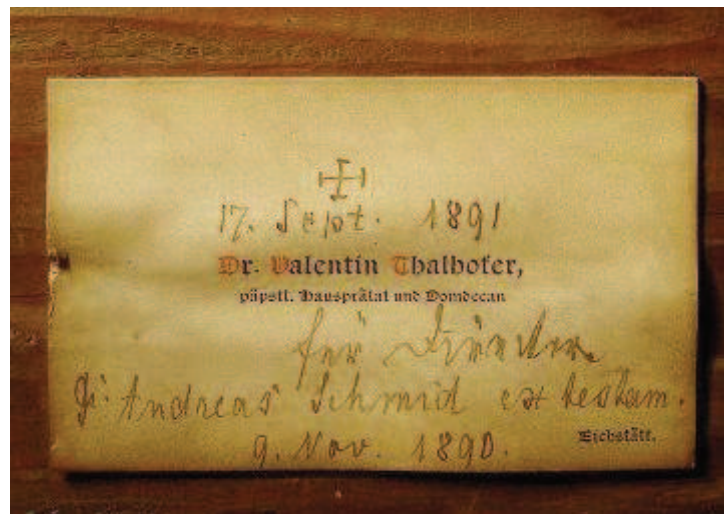 17. Sept. 1891
Dr. Valentin Thalhofer,
päpstl. Hausprälat und Domdecan
für Director
Andreas Schmid ex testam.
9. Nov. 1890.
Eichstätt.